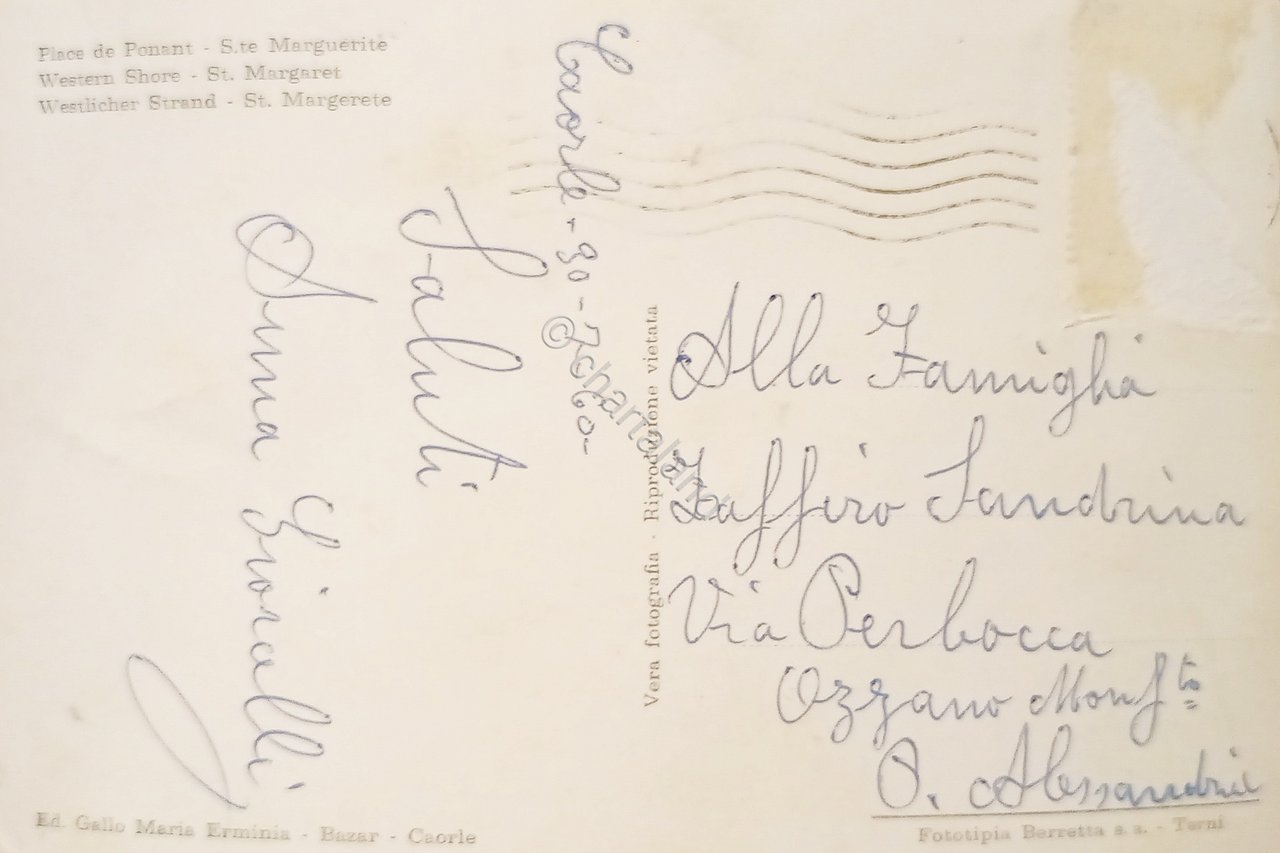 Place de Ponant - S.te Marguerite
Western Shore - St. Margaret
Westlicher Strand - St. Margerete
Caorle - 30 - 7 - 60 -
Saluti
Anna
Vera fotografia - Riproduzione vietata
Alla Famiglia
Zaffiro Sandrina
Via Perbocca
Ozzano Monfto
P. Alessandria
Ed. Gallo Maria Erminia - Bazar - Caorle
Fototipia Berretta s. a. - Terni
© chartaland